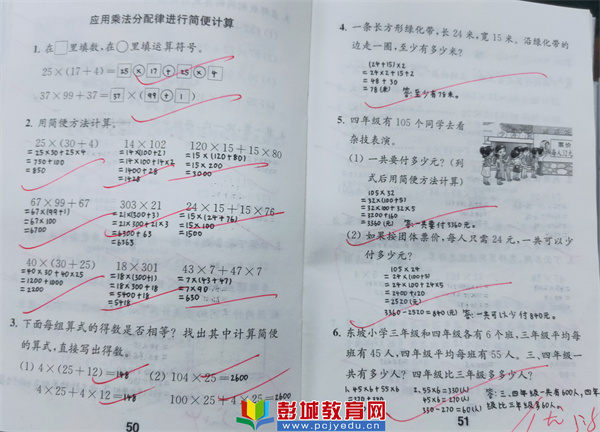 应用乘法分配律进行简便计算
1. 在□里填数,在○里填运算符号。
25×(17+4)=25×17+25×4
37×99+37=37×(99+1)
2. 用简便方法计算。
25×(30+4) 14×102 120×15+15×80
=25×30+25×4 =14×(100+2) =15×(120+80)
=750+100 =14×100+14×2 =15×200
=850 =1400+28 =3000
=1428
67×99+67 303×21 24×15+15×76
=67×(99+1) =21×(300+3) =15×(24+76)
=67×100 =21×300+21×3 =15×100
=6700 =6300+63 =1500
=6363
40×(30+25) 18×301 43×7+47×7
=40×30+40×25 =18×(300+1) =7×(43+47)
=1200+1000 =18×300+18×1 =7×90
=2200 =5400+18 =630
=5418
3. 下面每组算式的得数是否相等?找出其中计算简便
的算式,直接写出得数。
(1) 4×(25+12)=148 (2) 104×25=2600
4×25+4×12=148 100×25+4×25=2600
50
4. 一条长方形绿化带,长24米,宽15米。沿绿化带的
边走一圈,至少有多少米?
(24+15)×2
=24×2+15×2
=48+30
=78(米) 答:至少有78米。
5. 四年级有105个同学去看
杂技表演。
票价
(1) 一共要付多少元?(列
式后用简便方法计算)
105×32
=32×(100+5)
=32×100+32×5
=3200+160
=3360(元) 答:一共要付3360元。
(2) 如果按团体票价,每人只需24元,一共可以少
付多少元?
105×24
=24×(100+5)
=24×100+24×5
=2400+120
=2520(元)
3360-2520=840(元) 答:一共可以少付840元。
6. 东坡小学三年级和四年级各有6个班,三年级平均每
班有45人,四年级平均每班有55人。三、四年级一
共有多少人?四年级比三年级多多少人?
1. 45×6+55×6 2. 55×6=330(人) 答:三、四年级一共有600人,四年
=270+330 45×6=270(人) 级比三年级多60人。
330-270=60(人)
51
彭城教育网
www.pcjyedu.cn